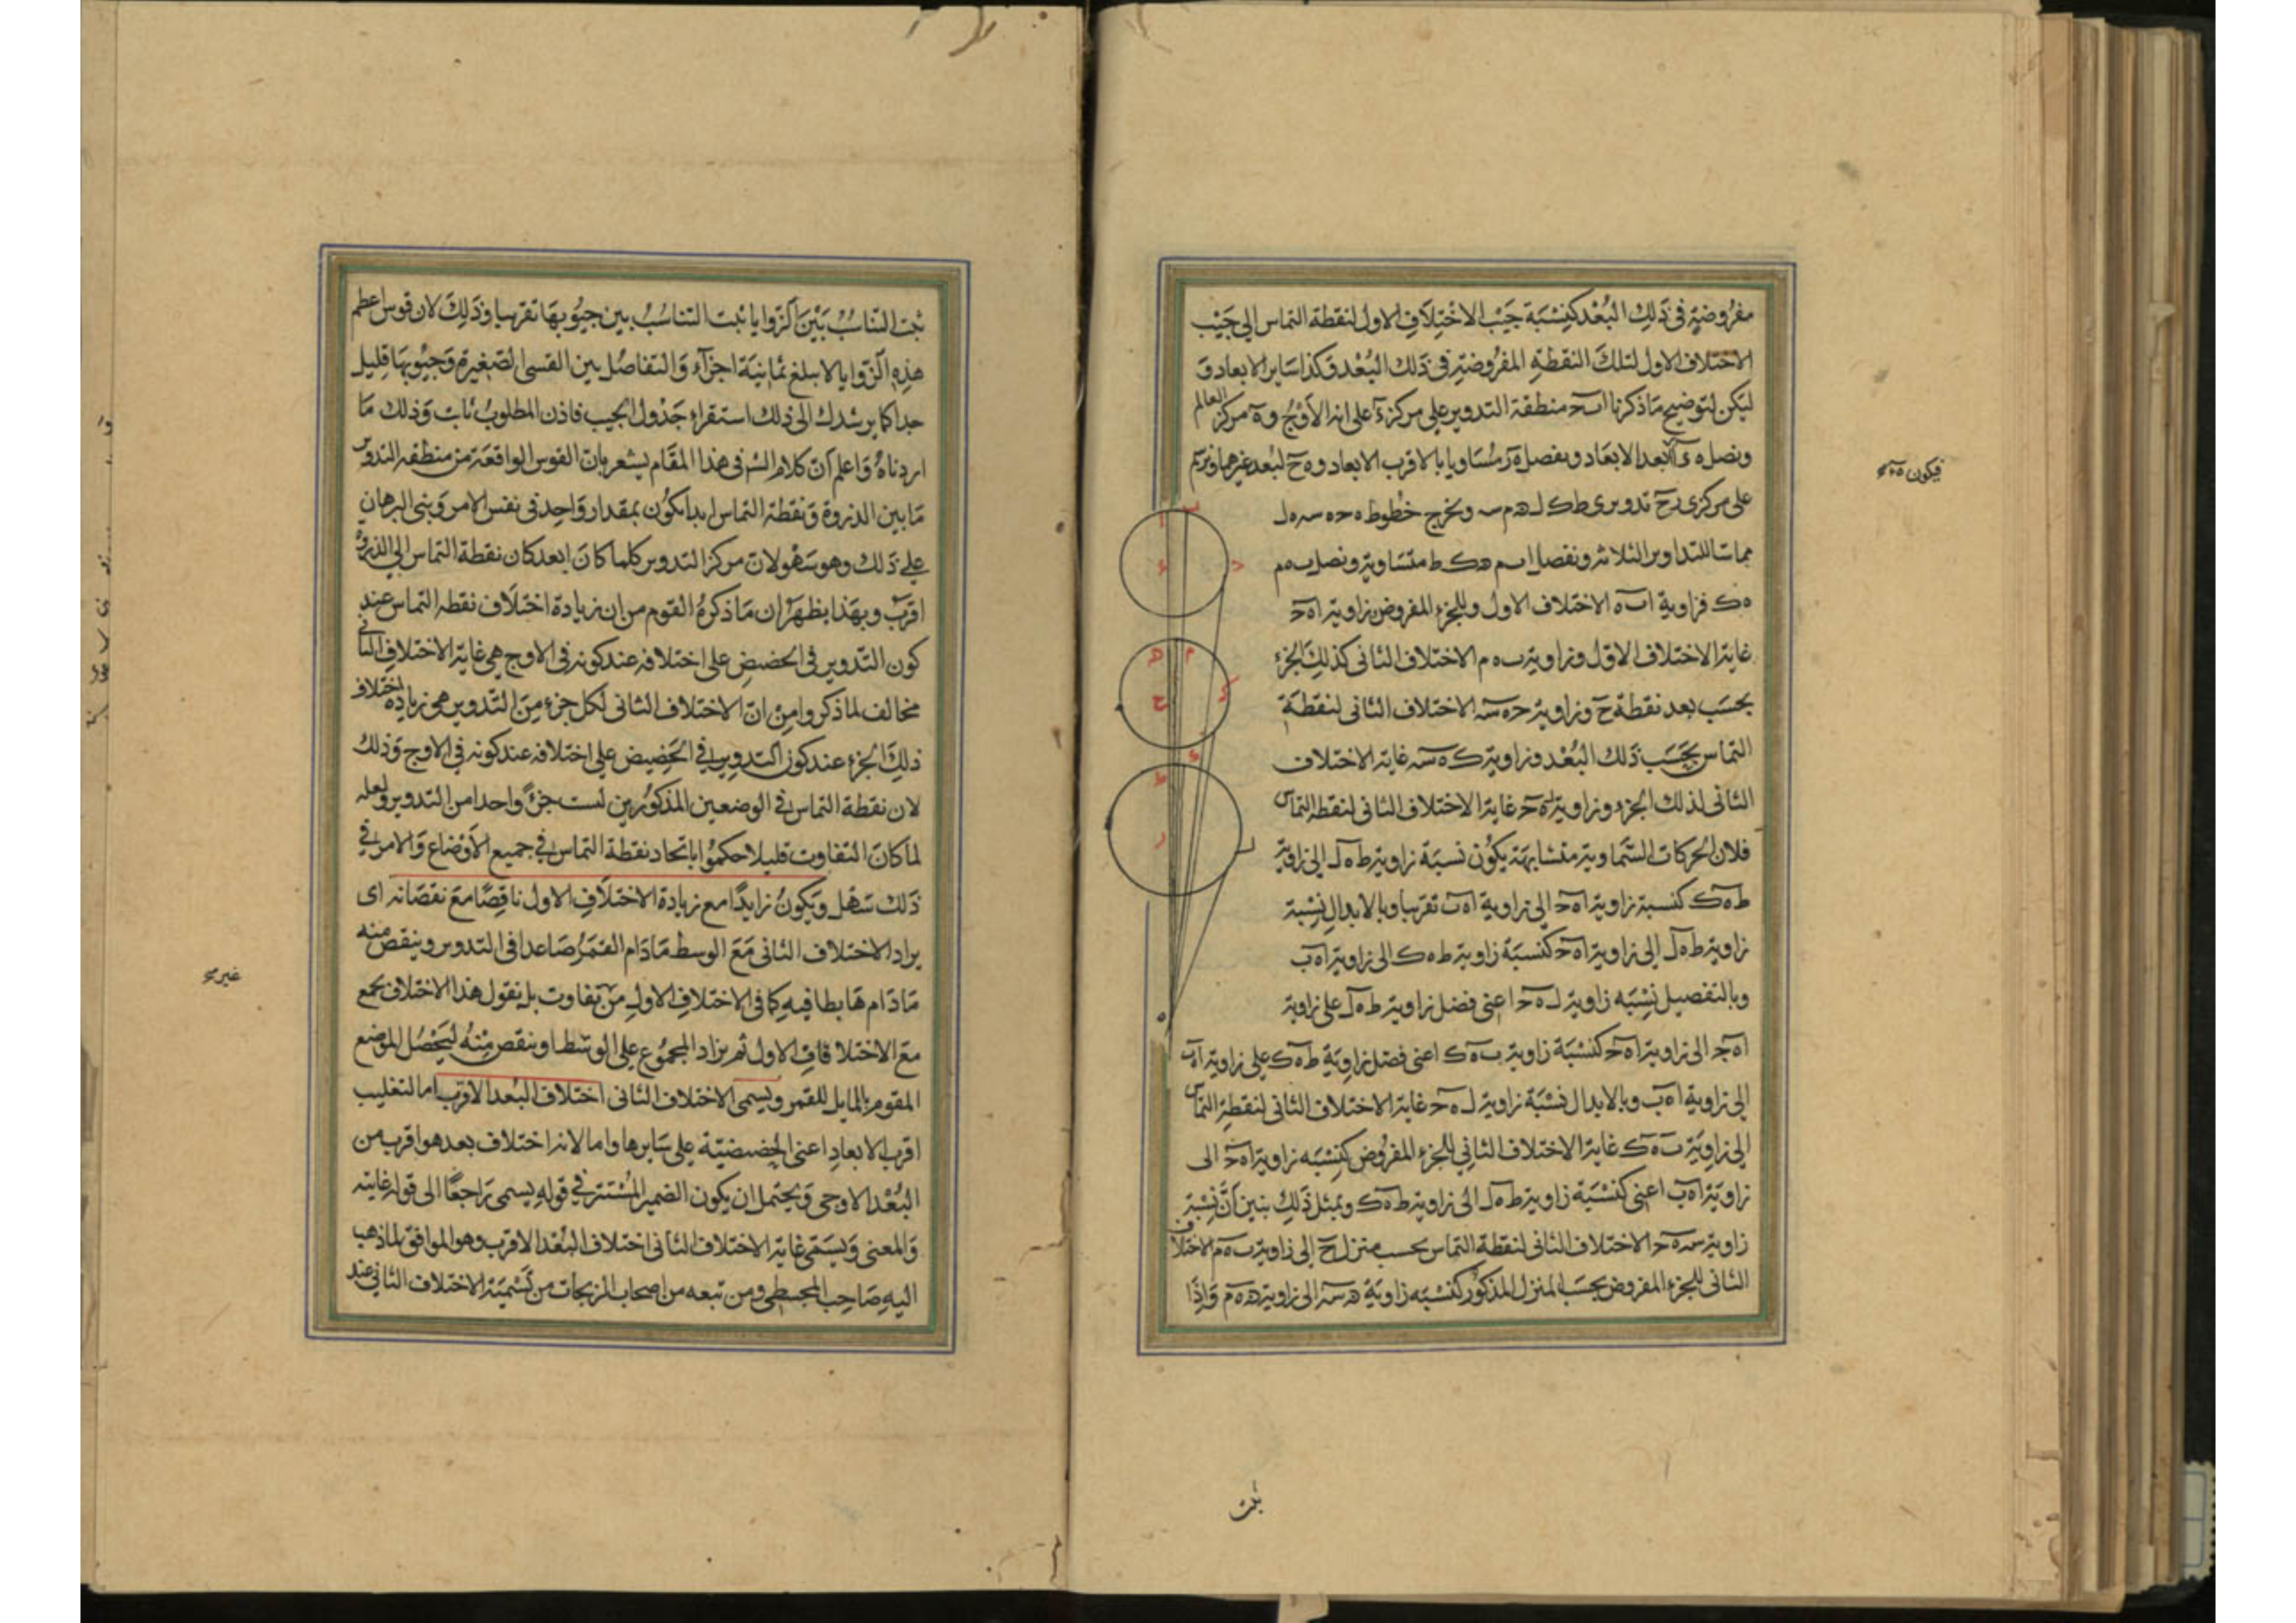 مفروضة في ذلك البعد كنسبة جيب الاختلاف الاول لنقطة التماس الى جيب
الاختلاف الاول لتلك النقطة المفروضة في ذلك البعد وكذا ساير الابعاد و
ليكن لتوضيح ما ذكرنا ا ب ح منطقة التدوير على مركز ء على انه الاوج و ه مركز العالم
ونصل ه ء ا لابعد الابعاد ونفصل ه ر مساويا بالاقرب الابعاد و ه ح لبعد غيرهما ونرسم
على مركزي ر ح تدويري ط ك ل ه م س ونخرج خطوط ه ح ه س ه ل
مماسة للتداوير الثلاثة ونفصل ا ب م ه ك ط متساوية ونصل ب ه م
ه ك فزاوية ا ب ه الاختلاف الاول وللجزء المفروض زاوية ا ه ح
غاية الاختلاف الاول وزاوية ب ه م الاختلاف الثاني كذلك الجزء
بحسب بعد نقطة ح وزاوية ح ه س الاختلاف الثاني لنقطة
التماس بحسب ذلك البعد وزاوية ك ه س غاية الاختلاف
الثاني لذلك الجزء وزاوية ل ه ح غاية الاختلاف الثاني لنقطة التماس
فلان الحركات السماوية متشابهة يكون نسبة زاوية ط ه ل الى زاوية
ط ه ك كنسبة زاوية ا ه ح الى زاوية ا ه ب تقريبا وبالابدال نسبة
زاوية ط ه ل الى زاوية ا ه ح كنسبة زاوية ط ه ك الى زاوية ا ه ب
وبالتفصيل نسبة زاوية ل ه ح اعني فضل زاوية ط ه ل على زاوية
ا ه ح الى زاوية ا ه ح كنسبة زاوية ب ه ك اعني فضل زاوية ط ه ك على زاوية ا ه ب
الى زاوية ا ه ب وبالابدال نسبة زاوية ل ه ح غاية الاختلاف الثاني لنقطة التماس
الى زاوية ب ه ك غاية الاختلاف الثاني للجزء المفروض كنسبة زاوية ا ه ح الى
زاوية ا ه ب اعني كنسبة زاوية ط ه ل الى زاوية ط ه ك وبمثل ذلك يبين ان نسبة
زاوية س ه ح الاختلاف الثاني لنقطة التماس بحسب منزل ح الى زاوية ب ه م الاختلاف
الثاني للجزء المفروض بحسب المنزل المذكور كنسبة زاوية ه س الى زاوية ه ه م واذا
فيكون
ثبت
ثبت التناسب بين الزوايا ثبت التناسب بين جيوبها تقريبا وذلك لان قوس اعظم
هذه الزوايا لا يبلغ ثمانية اجزاء والتفاضل بين القسى الصغيرة وجيوبها قليل
جدا كما يرشدك الى ذلك استقراء جدول الجيب فاذن المطلوب ثابت وذلك ما
اردناه واعلم ان كلام الش في هذا المقام يشعر بان القوس الواقعة من منطقة التدوير
ما بين الذروة ونقطة التماس ابدا يكون بمقدار واحد في نفس الامر وبني البرهان
على ذلك وهو سهو لان مركز التدوير كلما كان ابعد كان نقطة التماس الى الذروة
اقرب وبهذا يظهر ان ما ذكره القوم من ان زيادة اختلاف نقطة التماس عند
كون التدوير في الحضيض على اختلافه عند كونه في الاوج هي غاية الاختلاف الثاني
مخالف لما ذكروا من ان الاختلاف الثاني لكل جزء من التدوير هي زيادة اختلاف
ذلك الجزء عند كون التدوير في الحضيض على اختلافه عند كونه في الاوج وذلك
لان نقطة التماس في الوضعين المذكورين ليست جزءً واحدا من التدوير ولعله
لما كان التفاوت قليلا حكموا باتحاد نقطة التماس في جميع الاوضاع والامر في
ذلك سهل ويكون زايدا مع زيادة الاختلاف الاول ناقصا مع نقصانه اى
يراد الاختلاف الثاني مع الوسط مادام القمر صاعدا في التدوير وينقص منه
مادام هابطا فيه كما في الاختلاف الاول من تفاوت بل نقول هذا الاختلاف يجمع
مع الاختلاف الاول ثم يزاد المجموع على الوسط او ينقص منه ليحصل الموضع
المقوم بالمايل للقمر ويسمى الاختلاف الثاني اختلاف البعد الاقرب اما لتغليب
اقرب الابعاد اعني الحضيضية على سايرها واما لانه اختلاف بعد هو اقرب من
البعد الاوجى ويحتمل ان يكون الضمير المستتر في قوله يسمى راجعا الى قوله غايته
والمعنى ويسمى غاية الاختلاف الثاني اختلاف البعد الاقرب وهو الموافق لما ذهب
اليه صاحب المجسطي ومن تبعه من اصحاب الزيجات من تسمية الاختلاف الثاني عند
غير